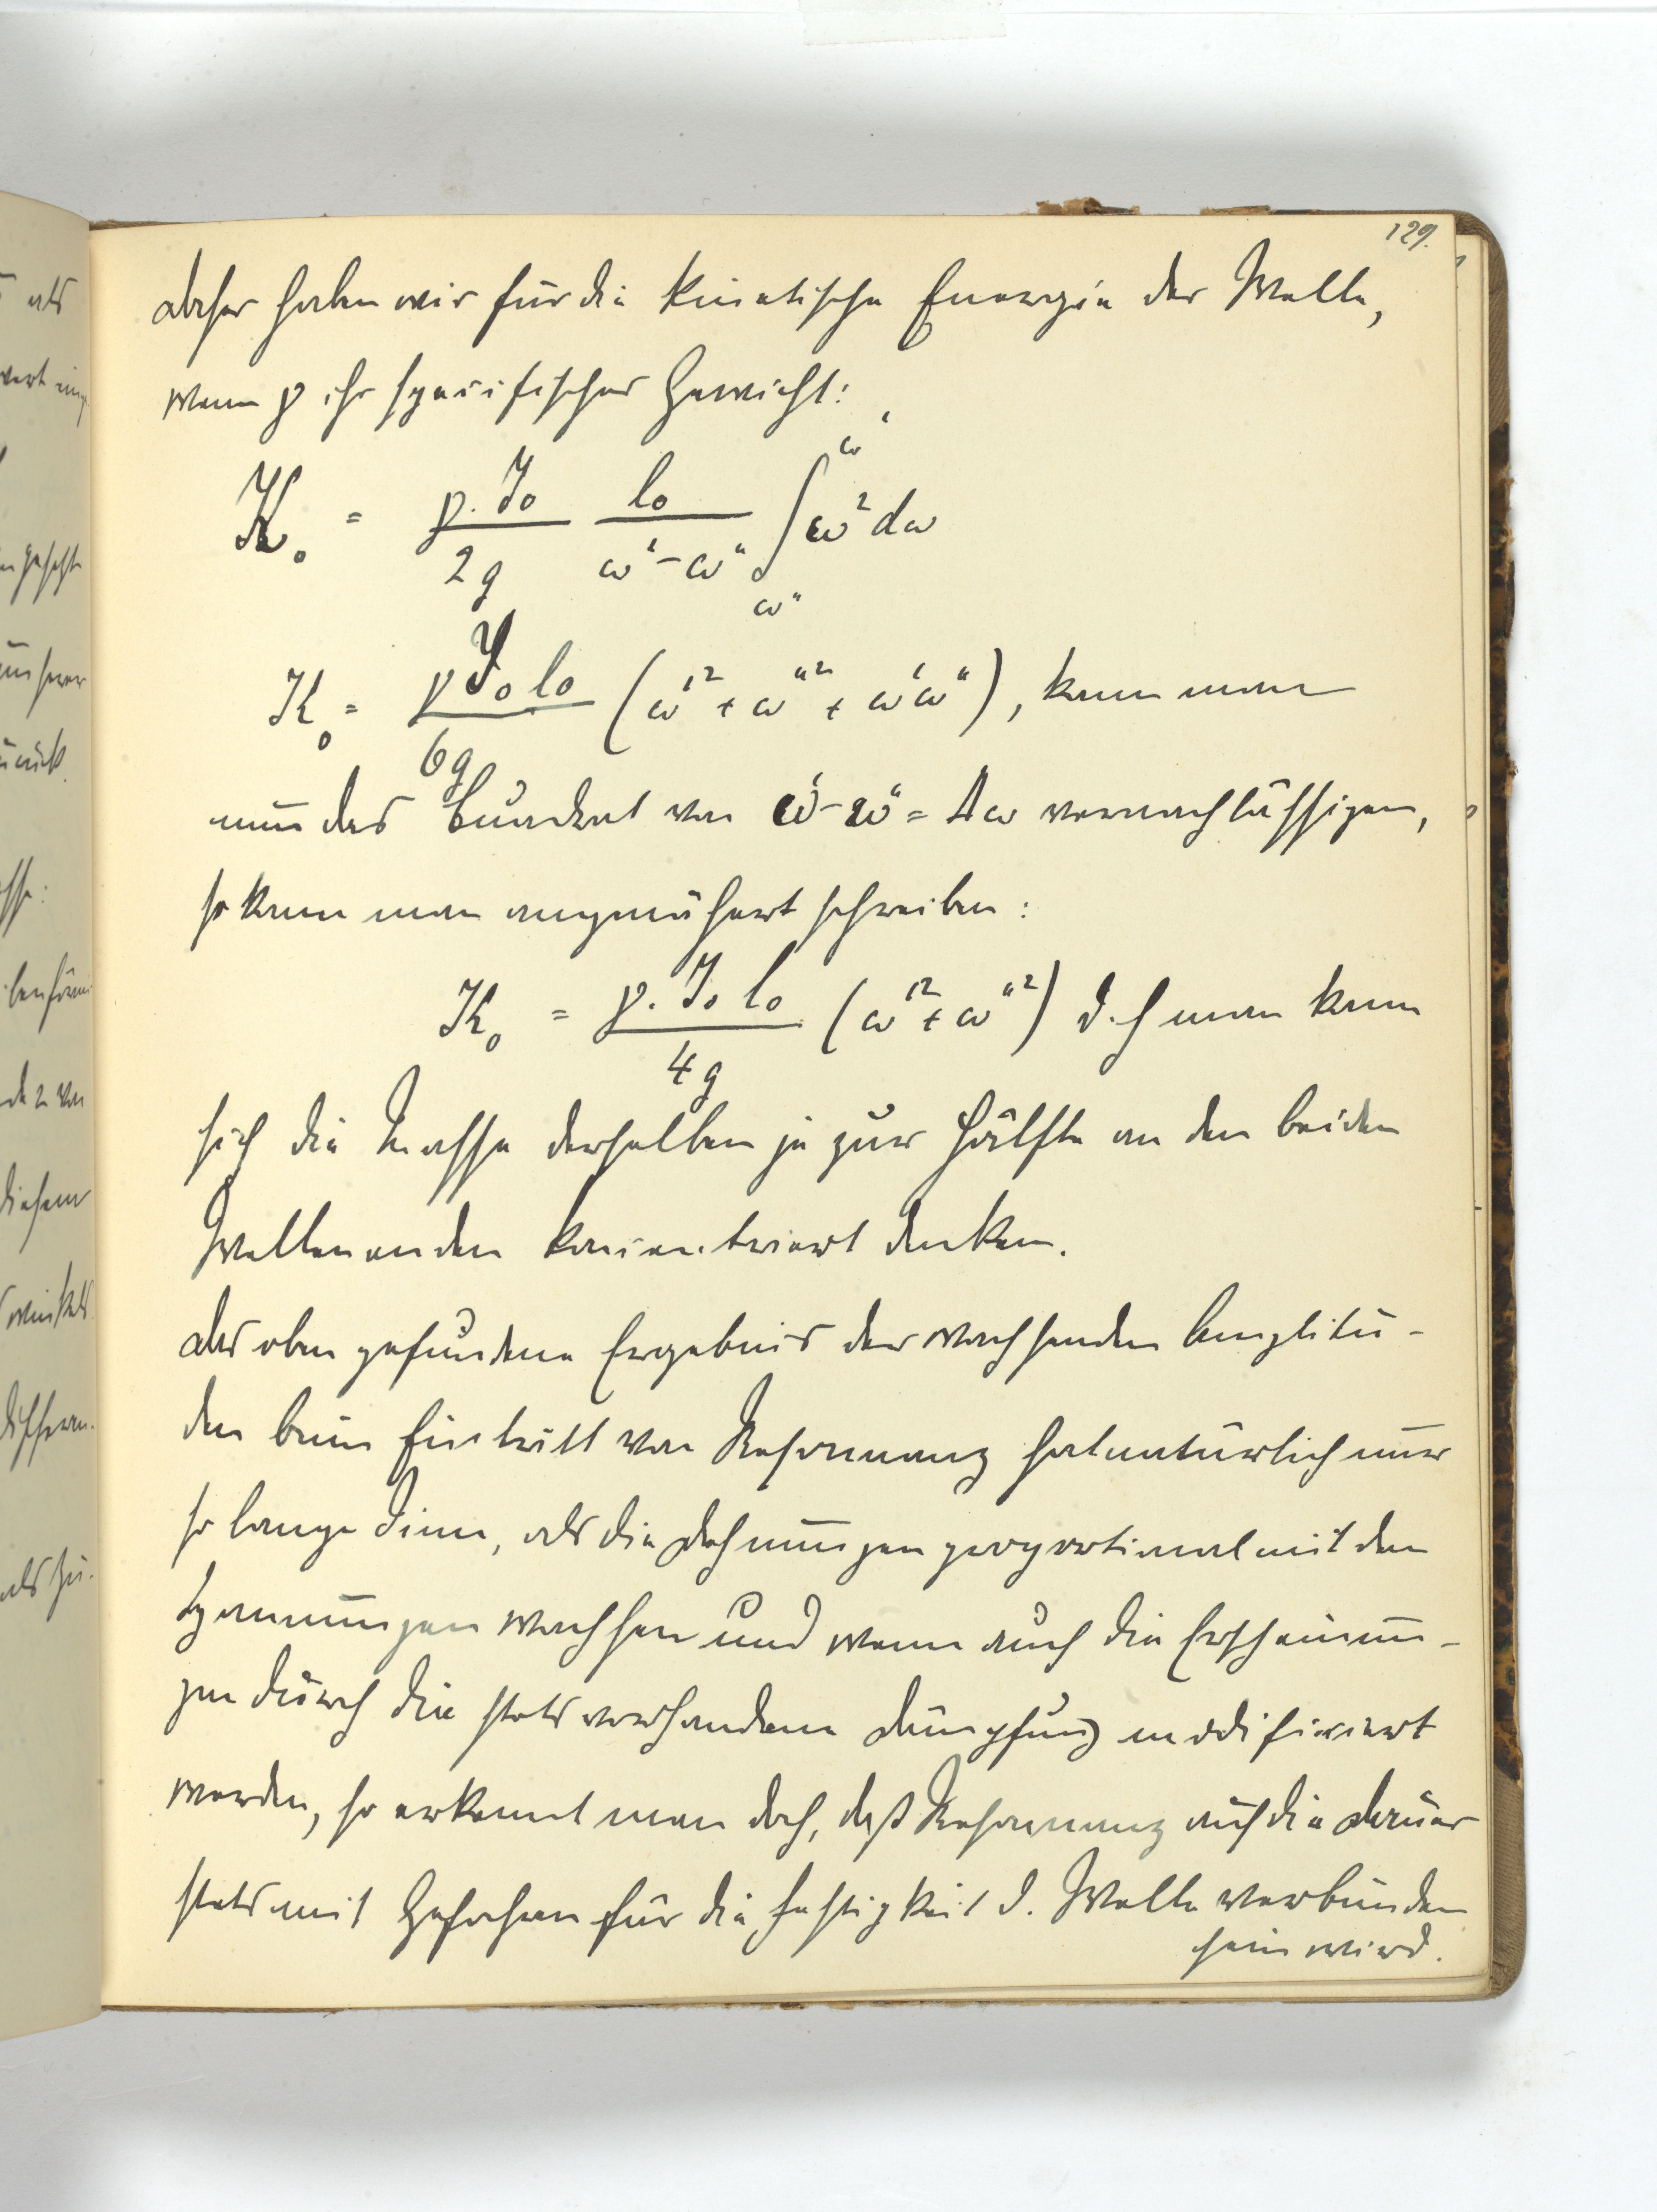 129.
daher haben wir für die kinetische Energie der Welle,
wenn γ ihr specifisches Gewicht:
K₀ = γ. J₀ / 2g · l₀ / (ω' − ω") ∫_{ω"}^{ω'} ω² dω
K₀ = γ J₀ l₀ / 6g (ω'² + ω"² + ω'ω"), kann man
nun das Quadrat von ω' − ω" = Δω vernachlässigen,
so kann man angenähert schreiben:
K₀ = γ. J₀ l₀ / 4g (ω'² + ω"²) d. h man kann
sich die Masse derselben je zur Hälfte an den beiden
Wellenenden koncentriert denken.
Das oben gefundene Ergebnis der wachsenden Amplitu-
den beim Eintritt von Resonanz hat natürlich nur
so lange Sinn, als die Dehnungen proportional mit den
Spannungen wachsen und wenn auch die Erscheinun-
gen durch die stets vorhandene Dämpfung modificiert
werden, so erkennt man doch, daß Resonanz auf die Dauer
stets mit Gefahren für die Festigkeit d. Welle verbunden
sein wird.
als
wert